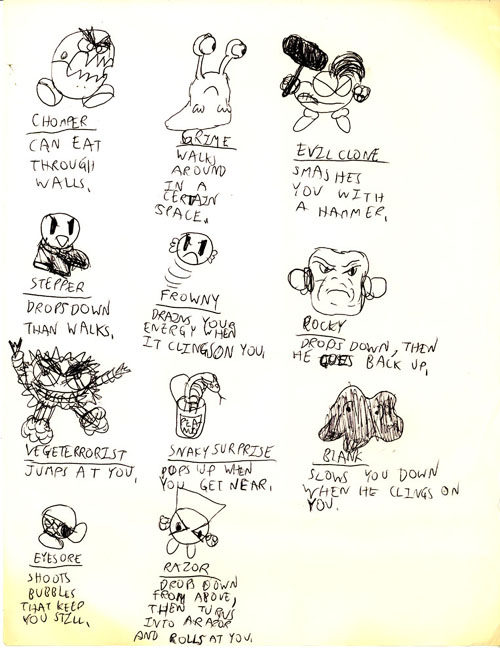 CHOMPER
CAN EAT
THROUGH
WALLS.
GRIME
WALKS
AROUND
IN A
CERTAIN
SPACE.
EVIL CLONE
SMASHES
YOU WITH
A HAMMER.
STEPPER
DROPS DOWN
THAN WALKS.
FROWNY
DRAINS YOUR
ENERGY WHEN
IT CLINGS ON YOU.
ROCKY
DROPS DOWN, THEN
HE GOES BACK UP.
VEGETERRORIST
JUMPS AT YOU.
SNAKY SURPRISE
POPS UP WHEN
YOU GET NEAR.
BLANK
SLOWS YOU DOWN
WHEN HE CLINGS ON
YOU.
EYESORE
SHOOTS
BUBBLES
THAT KEEP
YOU STILL.
RAZOR
DROPS DOWN
FROM ABOVE,
THEN TURNS
INTO A RAZOR
AND ROLLS AT YOU.